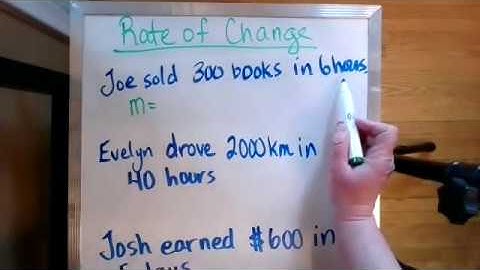 Rate of Change
Joe sold 300 books in 6 hours.
m=
Evelyn drove 2000km in
40 hours
Josh earned $600 in
5 days